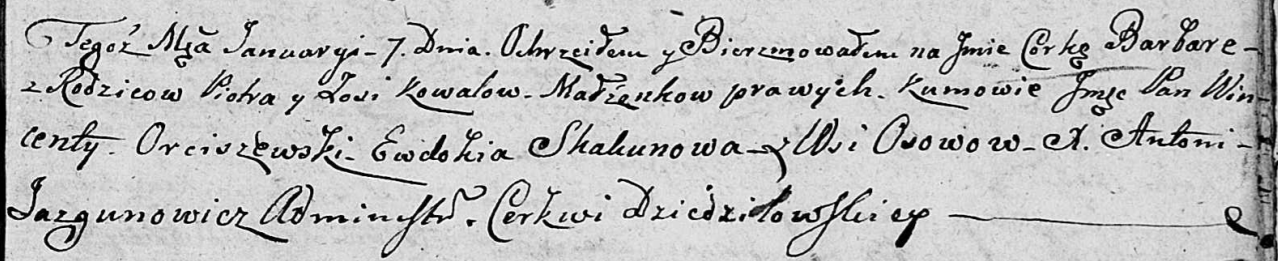 Tegoż Mca Januaryi - 7. Dnia. Ochrzciłem y Bierzmowałem na Jmie Corkę Barbare -
z Rodzicow Piotra y Zosi Kowalow. Małżenkow prawych. Kumowie Jmć Pan Win-
centy. Orciszewski. Ewdokia Skakunowa - z Wsi Osowow - X. Antoni -
Jazgunowicz Administr. Cerkwi Dziedziłowskiey